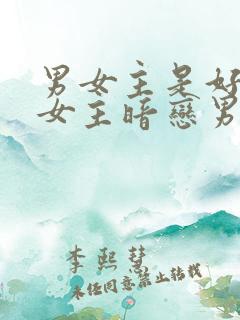 男女主是好
女主暗戀男
李熙慧
未经同意禁止转载